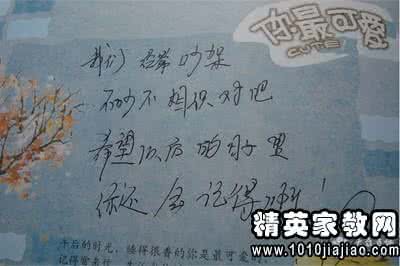 你最可爱
CUTE
我们经常吵架
不吵不相识对吧
希望以后的日子里
你还会记得!
午后的时光，睡得很香的你是最可爱
记得
精英家教网
www.1010jiajiao.com